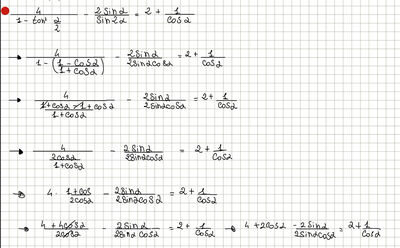 4/(1 - tan² α/2) - 2sinα/sin2α = 2 + 1/cosα
→ 4/(1 - (1 - cosα/1 + cosα)) - 2sinα/2sinαcosα = 2 + 1/cosα
→ 4/((1 + cosα - 1 + cosα)/(1 + cosα)) - 2sinα/2sinαcosα = 2 + 1/cosα
→ 4/(2cosα/(1 + cosα)) - 2sinα/2sinαcosα = 2 + 1/cosα
→ 4 · (1 + cos)/2cosα - 2sinα/2sinαcosα = 2 + 1/cosα
→ (4 + 4cosα)/2cosα - 2sinα/2sinαcosα = 2 + 1/cosα → (4 + 2cosα - 2sinα)/2sinαcosα = 2 + 1/cosα